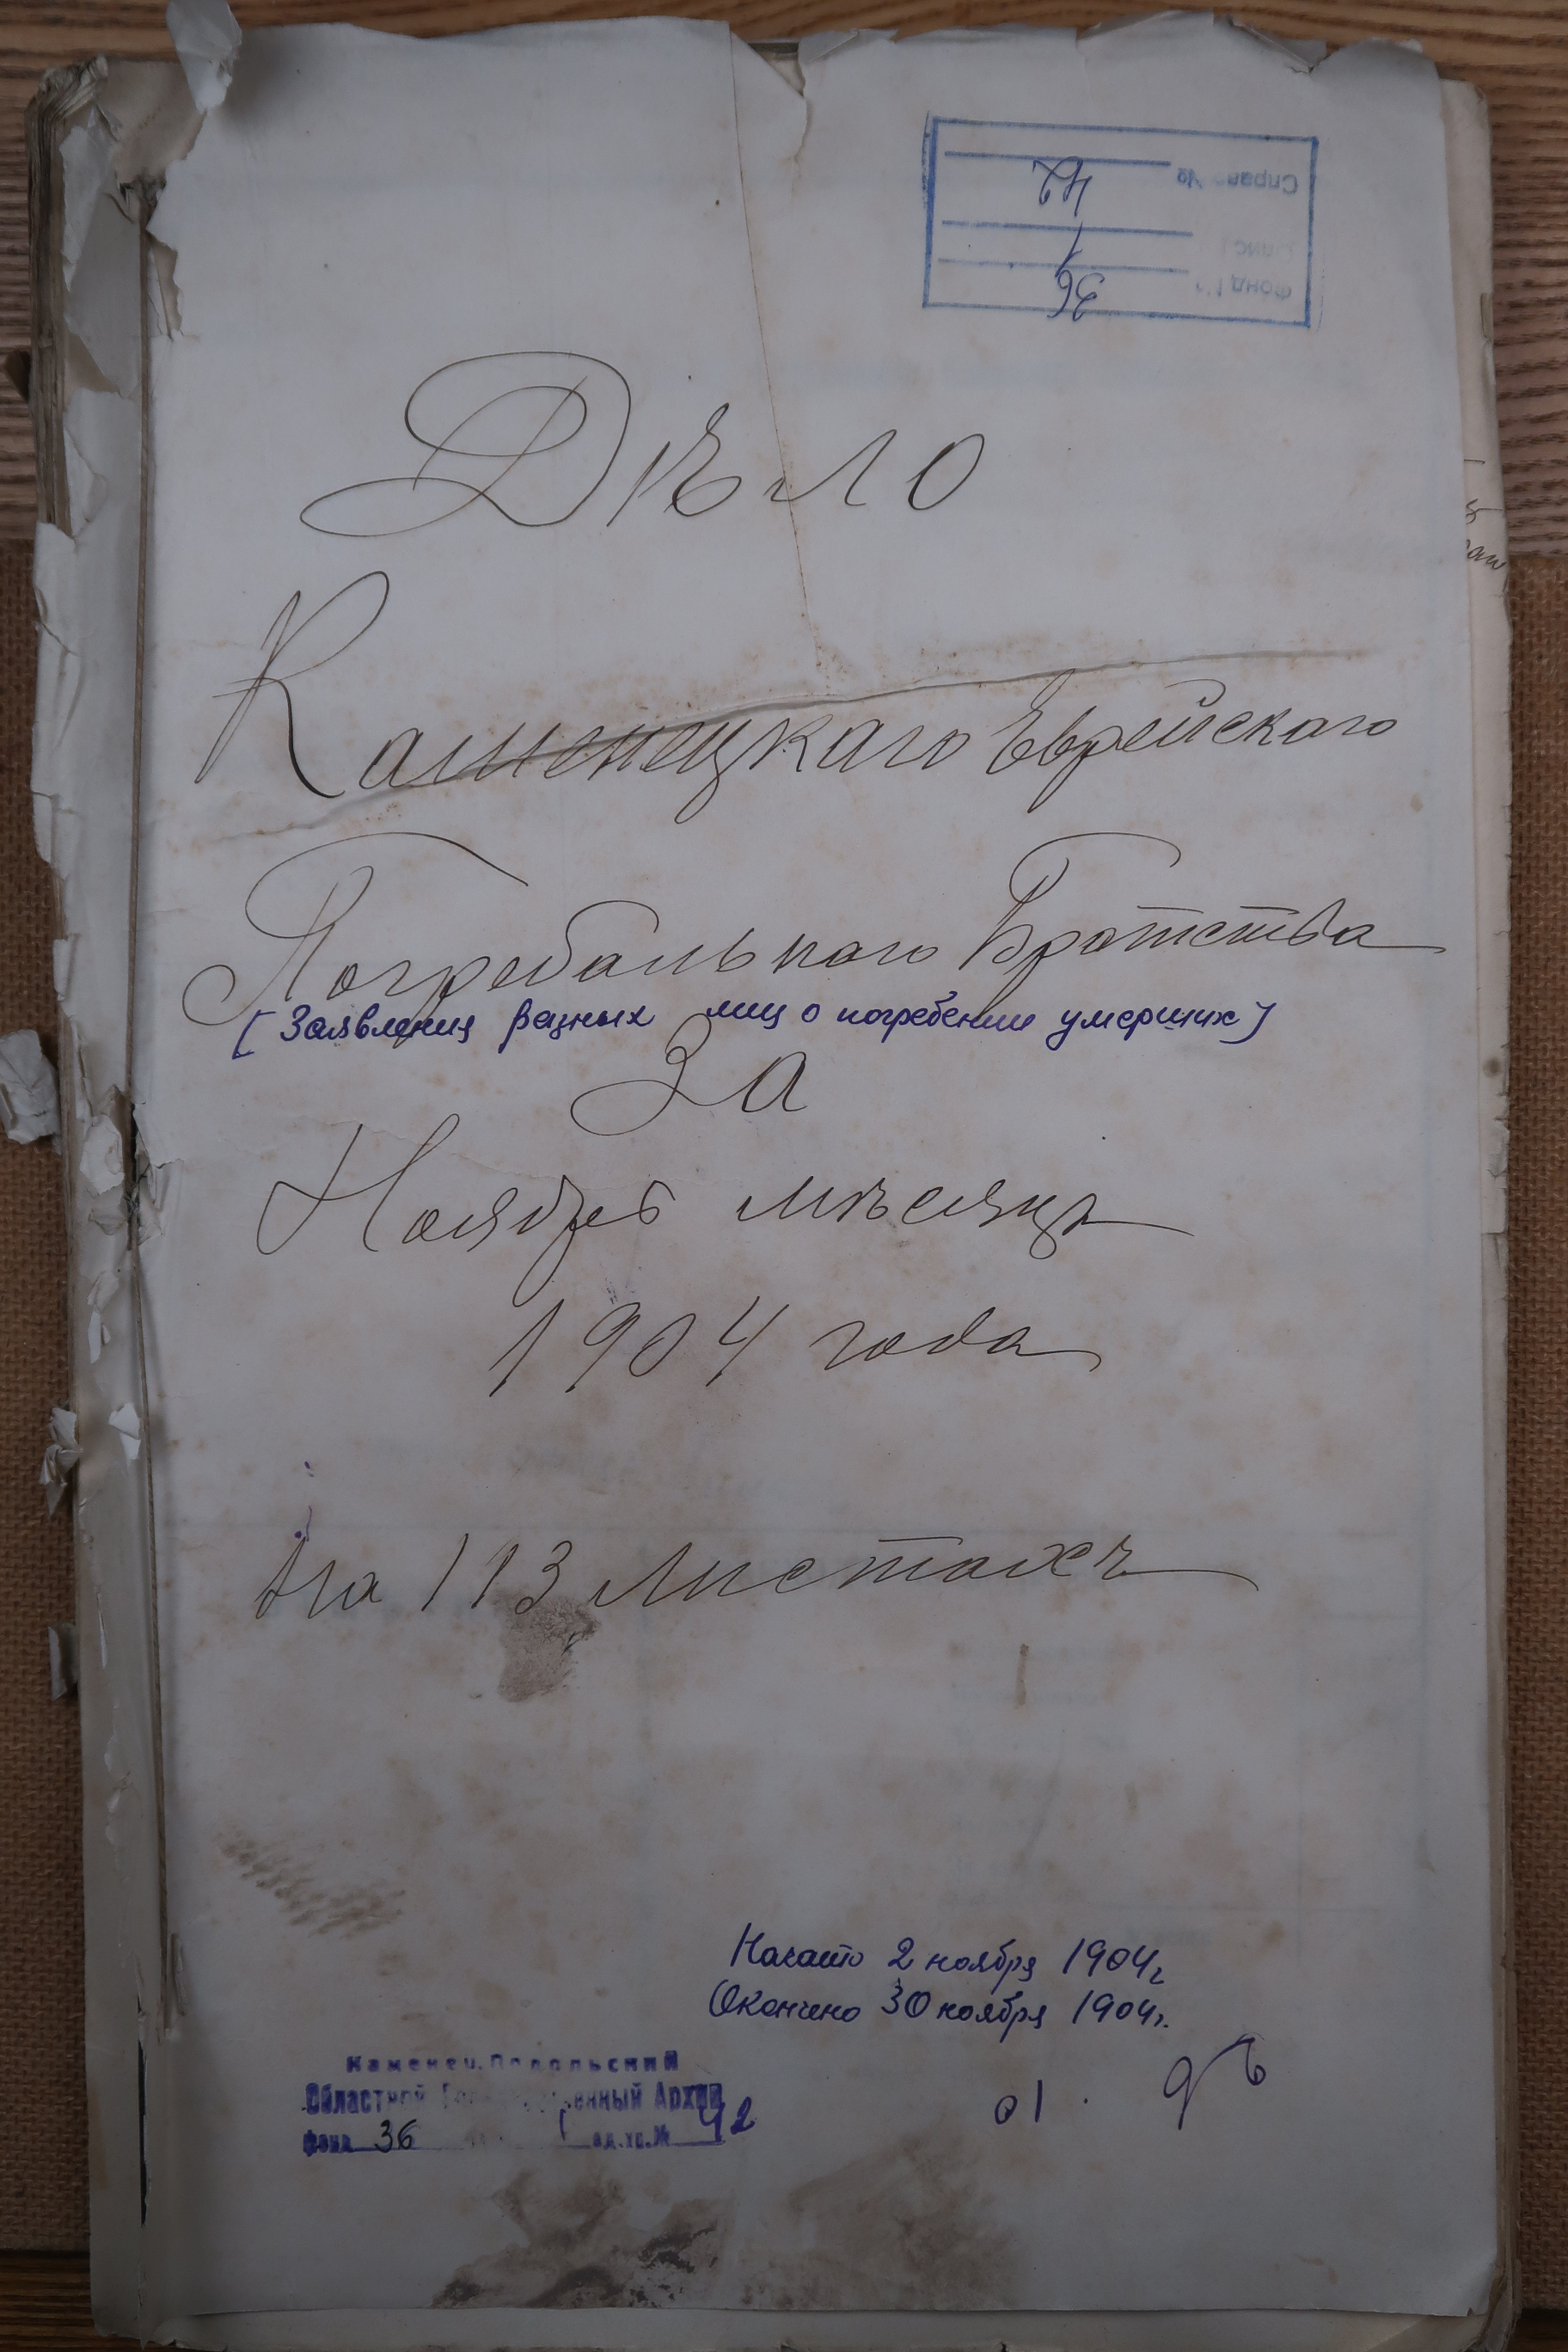 Справа № 42
Опис 1
Фонд № 36
Дѣло
Каменецкаго Еврейскаго
Погребальнаго Братства
(Заявления разных лиц о погребении умерших)
За
Ноябрь мѣсяцъ
1904 года
На 113 листахъ
Начато 2 ноября 1904 г.
Окончено 30 ноября 1904 г.
Каменец-Подольский
Областной Государственный Архив
фонд 36 1 ед.хр.№ 42